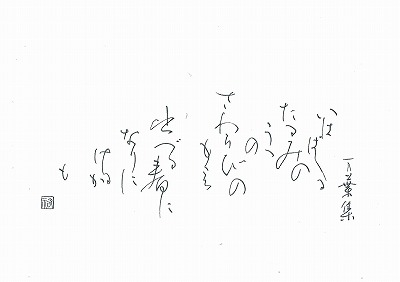 万葉集
いははしる
たるみの
うへ
の
さわらびの
もえ
出づる春に
なりに
けるか
も